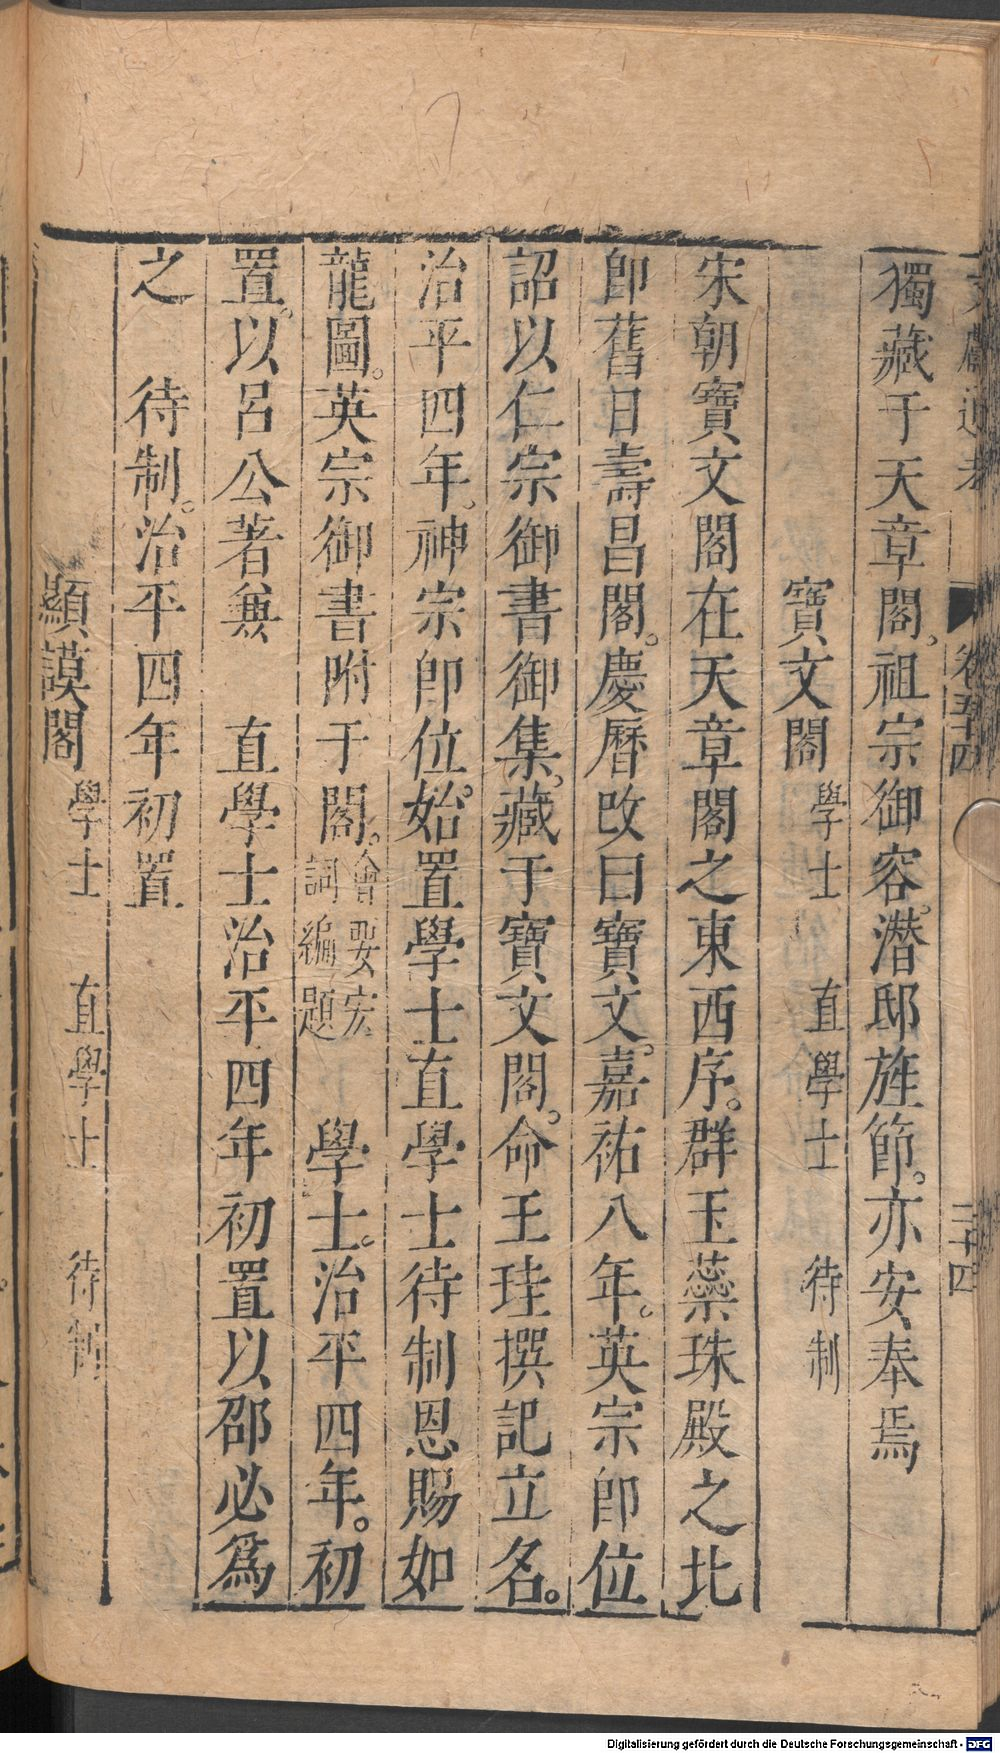 文獻通考 卷五十四 二十四
獨藏于天章閣。祖宗御容。潛邸旌節。亦安奉焉
寶文閣 學士 直學士 待制
宋朝寶文閣在天章閣之東西序。群玉蘂珠殿之北
卽舊日壽昌閣。慶曆改曰寶文。嘉祐八年。英宗卽位
詔以仁宗御書御集。藏于寶文閣。命王珪撰記立名。
治平四年。神宗卽位。始置學士直學士待制恩賜如
龍圖。英宗御書附于閣。會要宏詞編題 學士。治平四年。初
置。以呂公著兼 直學士治平四年初置以邵必爲
之 待制。治平四年初置
顯謨閣 學士 直學士 待制
Digitalisierung gefördert durch die Deutsche Forschungsgemeinschaft - DFG